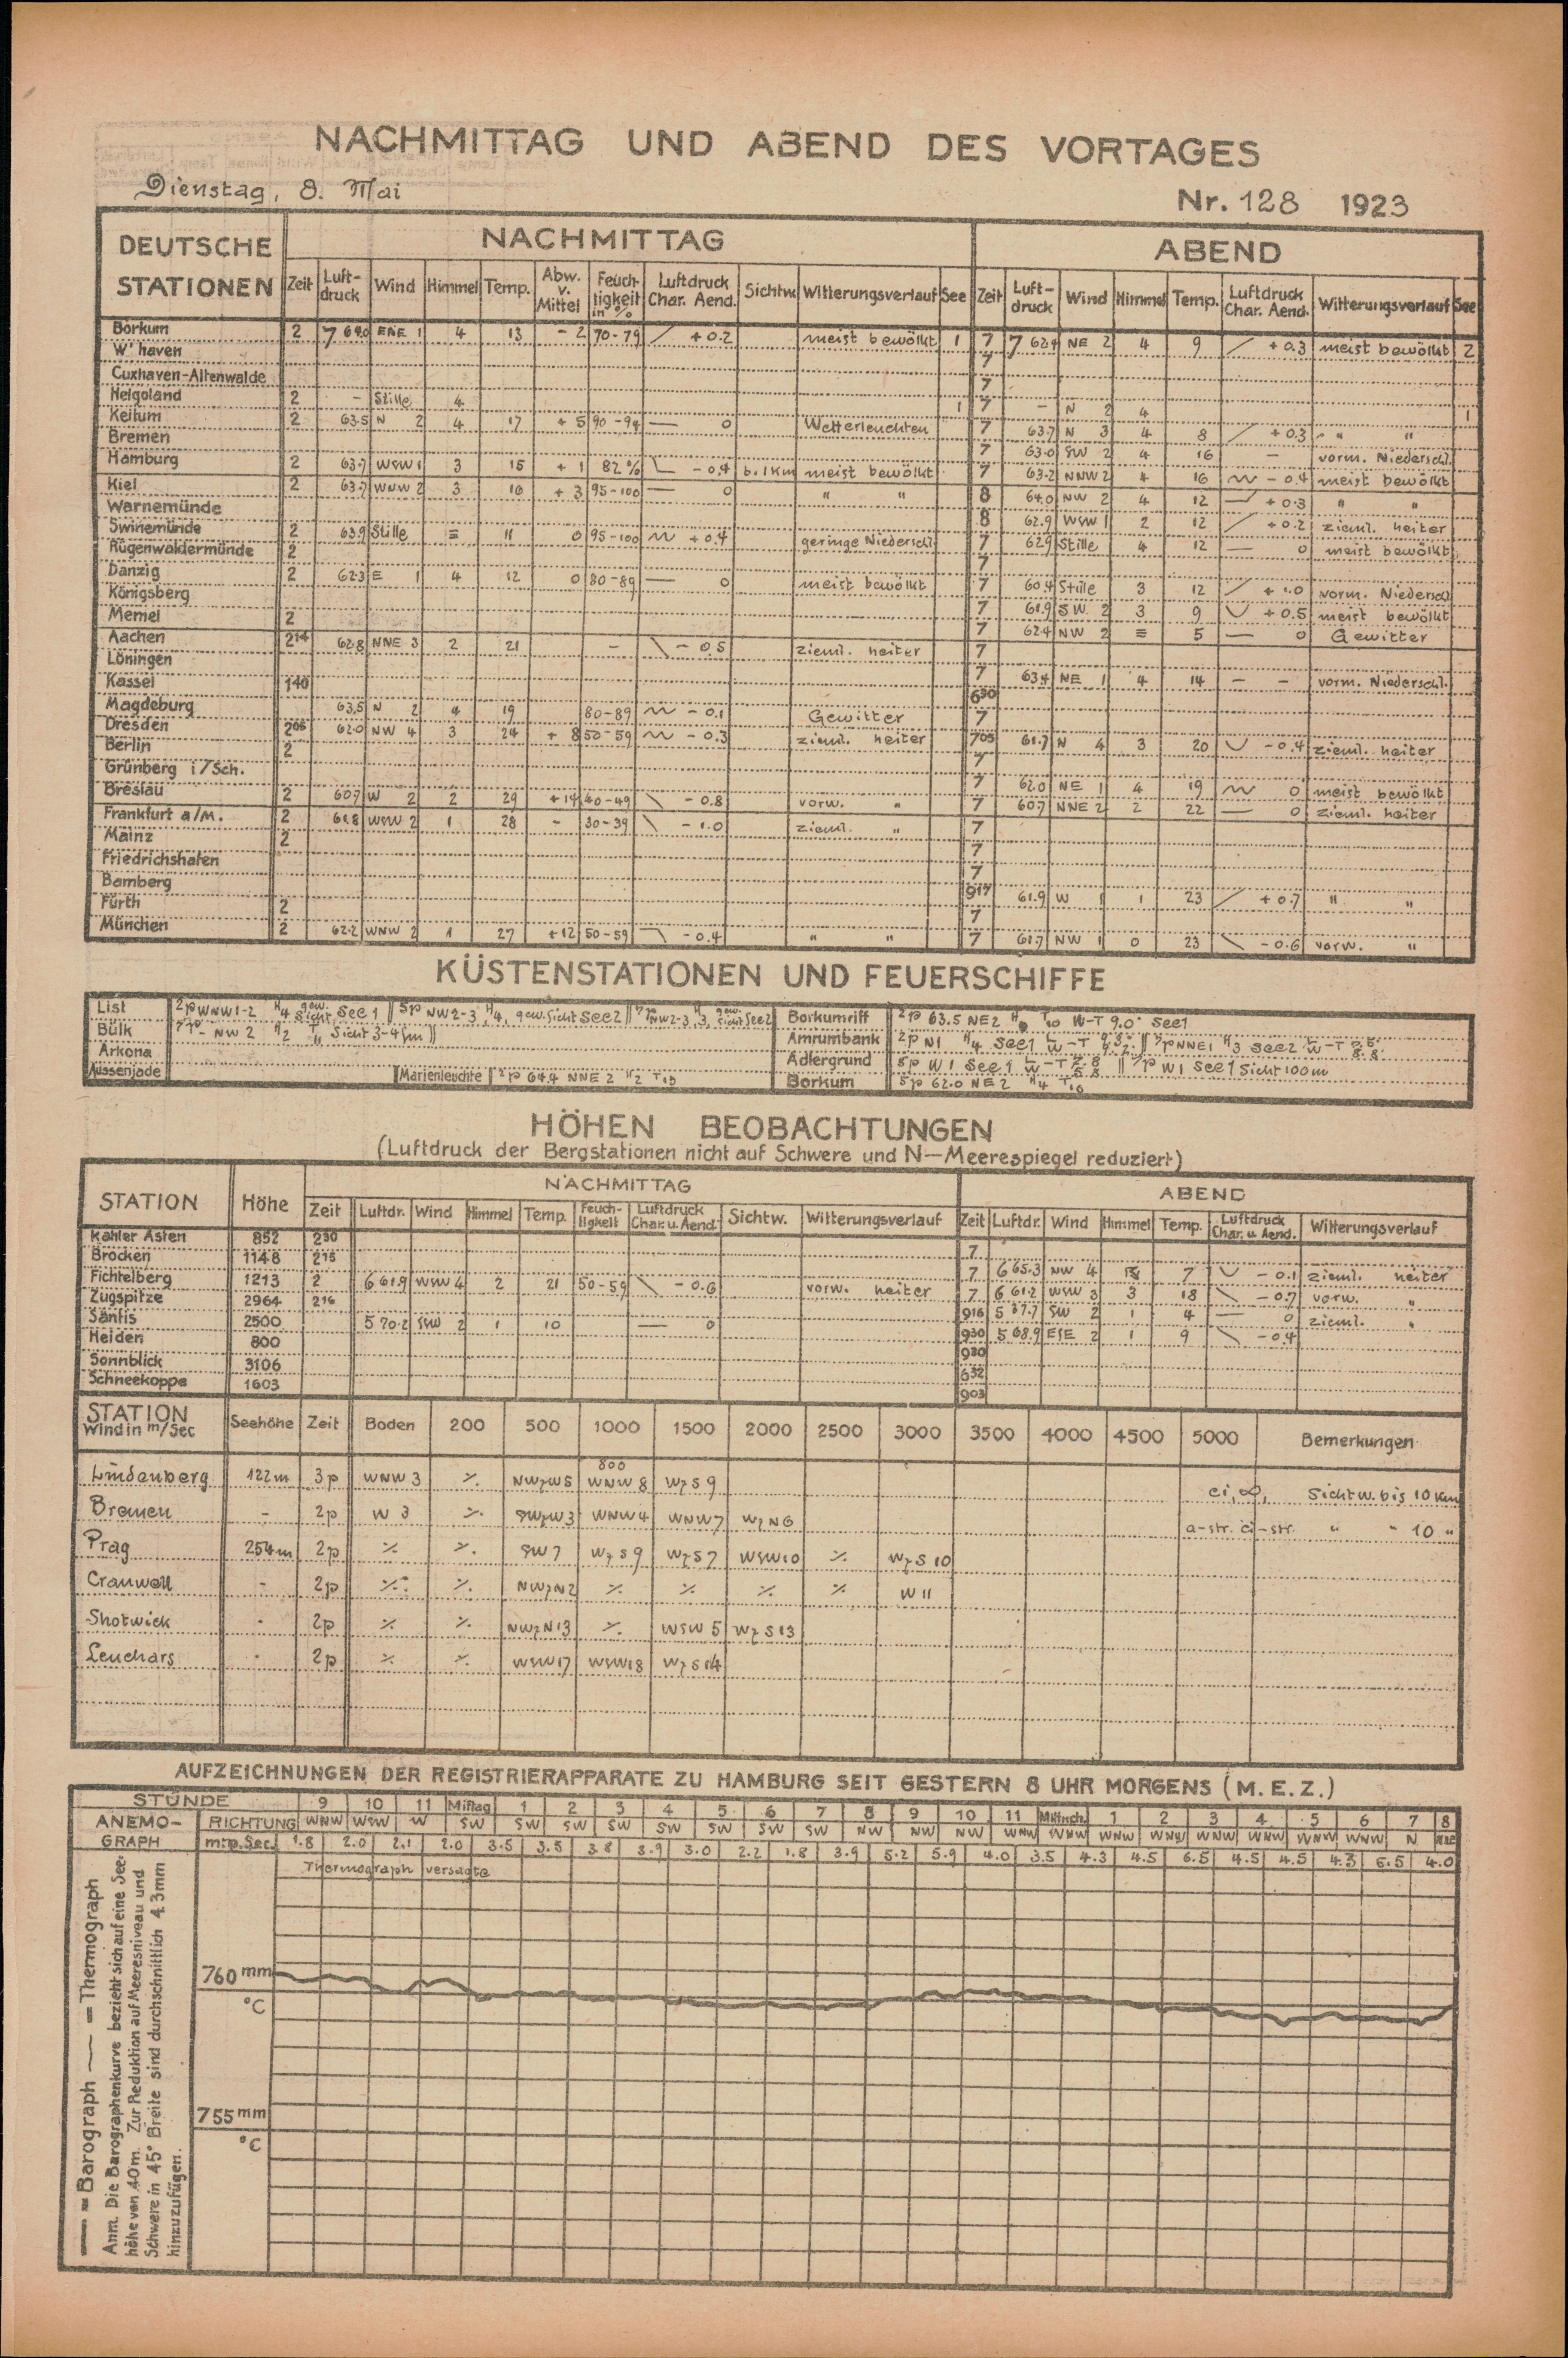 NACHMITTAG UND ABEND DES VORTAGES
Dienstag, 8. Mai
Nr. 128 1923
DEUTSCHE STATIONEN
NACHMITTAG
ABEND
Zeit Luft-druck Wind Himmel Temp. Abw. v. Mittel Feuch-tigkeit in % Luftdruck Char. Aend. Sichtw. Witterungsverlauf See Zeit Luft-druck Wind Himmel Temp. Luftdruck Char. Aend. Witterungsverlauf See
Borkum 2 7 64.0 ENE 1 4 13 - 2 70-79 + 0.2 meist bewölkt 1 7 7 62.9 NE 2 4 9 + 0.3 meist bewölkt 2
W'haven 7
Cuxhaven-Altenwalde 7
Helgoland 2 - Stille 4 1 7 - N 2 4 1
Keitum 2 63.5 N 2 4 17 + 5 90-94 0 Wetterleuchten 7 63.7 N 3 4 8 + 0.3 " "
Bremen 7 63.0 SW 2 4 16 - vorm. Niederschl.
Hamburg 2 63.7 WSW 1 3 15 + 1 82% - 0.4 b. 1 km meist bewölkt 7 63.2 NNW 2 4 16 - 0.4 meist bewölkt
Kiel 2 63.7 WNW 2 3 16 + 3 95-100 0 " " 8 64.0 NW 2 4 12 + 0.3 " "
Warnemünde 8 62.9 WSW 1 2 12 + 0.2 zieml. heiter
Swinemünde 2 63.9 Stille ≡ 11 0 95-100 + 0.4 geringe Niederschl. 7 62.9 Stille 4 12 0 meist bewölkt
Rügenwaldermünde 2 7
Danzig 2 62.3 E 1 4 12 0 80-89 0 meist bewölkt 7 60.4 Stille 3 12 + 1.0 vorm. Niederschl
Königsberg 7 61.9 SW 2 3 9 + 0.5 meist bewölkt
Memel 2 7 62.4 NW 2 ≡ 5 0 Gewitter
Aachen 2 14 62.8 NNE 3 2 21 - - 0.5 zieml. heiter 7
Löningen 7 63.4 NE 1 4 14 - - vorm. Niederschl.
Kassel 1 40 6 30
Magdeburg 63.5 N 2 4 19 80-89 - 0.1 Gewitter 7
Dresden 2 05 62.0 NW 4 3 24 + 8 50-59 - 0.3 zieml. heiter 7 05 61.7 N 4 3 20 - 0.4 zieml. heiter
Berlin 2 7
Grünberg i/Sch. 7 62.0 NE 1 4 19 0 meist bewölkt
Breslau 2 60.7 W 2 2 29 + 14 40-49 - 0.8 vorw. " 7 60.7 NNE 2 2 22 0 zieml. heiter
Frankfurt a/M. 2 61.8 WSW 2 1 28 - 30-39 - 1.0 zieml. " 7
Mainz 2 7
Friedrichshafen 7
Bamberg 9 17 61.9 W 1 1 23 + 0.7 " "
Fürth 2 7
München 2 62.2 WNW 2 1 27 + 12 50-59 - 0.4 " " 7 61.7 NW 1 0 23 - 0.6 vorw. "
KÜSTENSTATIONEN UND FEUERSCHIFFE
List 2p WNW 1-2 H4 gew. Sicht See 1 || 5p NW 2-3 H4, gew. Sicht See 2 || 7p NW 2-3 H3, gew. Sicht See 2
Bülk NW 2 H2 T11 Sicht 3-4 Sm ||
Arkona
Aussenjade
Marienleuchte 2p 64.4 NNE 2 H2 T13
Borkumriff 2p 63.5 NE 2 T10 W-T 9.0° See 1
Amrumbank 2p N1 H4 See 1 || 7p NNE 1 H3 See 2
Adlergrund 8p W 1 See 1 || 7p W 1 See 1 Sicht 100 m
Borkum 5p 62.0 NE 2 H4 T10
HÖHEN BEOBACHTUNGEN
(Luftdruck der Bergstationen nicht auf Schwere und N-Meerespiegel reduziert)
STATION Höhe
NACHMITTAG
ABEND
Zeit Luftdr. Wind Himmel Temp. Feuch-tigkeit Luftdruck Char. u. Aend. Sichtw. Witterungsverlauf Zeit Luftdr. Wind Himmel Temp. Luftdruck Char. u. Aend. Witterungsverlauf
Kahler Asten 852 2 30 7
Brocken 1148 2 15 7 6 65.3 NW 4 7 - 0.1 zieml. heiter
Fichtelberg 1213 2 6 61.9 WSW 4 2 21 50-59 - 0.6 vorw. heiter 7 6 61.2 WSW 3 3 18 - 0.7 vorw. "
Zugspitze 2964 2 16 9 16 5 37.7 SW 2 1 4 0 zieml. "
Säntis 2500 5 70.2 SSW 2 1 10 0 9 30 5 68.9 ESE 2 1 9 - 0.4
Heiden 800 9 30
Sonnblick 3106 6 32
Schneekoppe 1603 9 03
STATION Wind in m/Sec Seehöhe Zeit Boden 200 500 1000 1500 2000 2500 3000 3500 4000 4500 5000 Bemerkungen
Lindenberg 122 m 3p WNW 3 ∕. NWzW 5 800 WNW 8 WzS 9 ci, ∞, Sichtw. bis 10 Km
Bremen - 2p W 3 ∕. SWzW 3 WNW 4 WNW 7 WzN 6 a-str. ci-str. " " 10 "
Prag 254 m 2p ∕. ∕. SW 7 WzS 9 WzS 7 WSW 10 ∕. WzS 10
Cranwell - 2p ∕. ∕. NWzN 2 ∕. ∕. ∕. ∕. W 11
Shotwick - 2p ∕. ∕. NWzN 13 ∕. WSW 5 WzS 13
Leuchars - 2p ∕. ∕. WSW 17 WSW 18 WzS 14
AUFZEICHNUNGEN DER REGISTRIERAPPARATE ZU HAMBURG SEIT GESTERN 8 UHR MORGENS (M. E. Z.)
STUNDE 9 10 11 Mittag 1 2 3 4 5 6 7 8 9 10 11 Mitnch. 1 2 3 4 5 6 7 8
ANEMO-GRAPH RICHTUNG WNW WSW W SW SW SW SW SW SW SW SW NW NW NW WNW WNW WNW WNW WNW WNW WNW WNW N
mtr.p.Sec. 1.8 2.0 2.1 2.0 3.5 3.5 3.8 3.9 3.0 2.2 1.8 3.9 5.2 5.9 4.0 3.5 4.3 4.5 6.5 4.5 4.5 4.3 6.5 4.0
Thermograph versagte
760 mm
°C
755 mm
°C
— = Barograph — = Thermograph
Anm. Die Barographenkurve bezieht sich auf eine See-
höhe von 40 m. Zur Reduktion auf Meeresniveau und
Schwere in 45° Breite sind durchschnittlich 4.3 mm
hinzuzufügen.